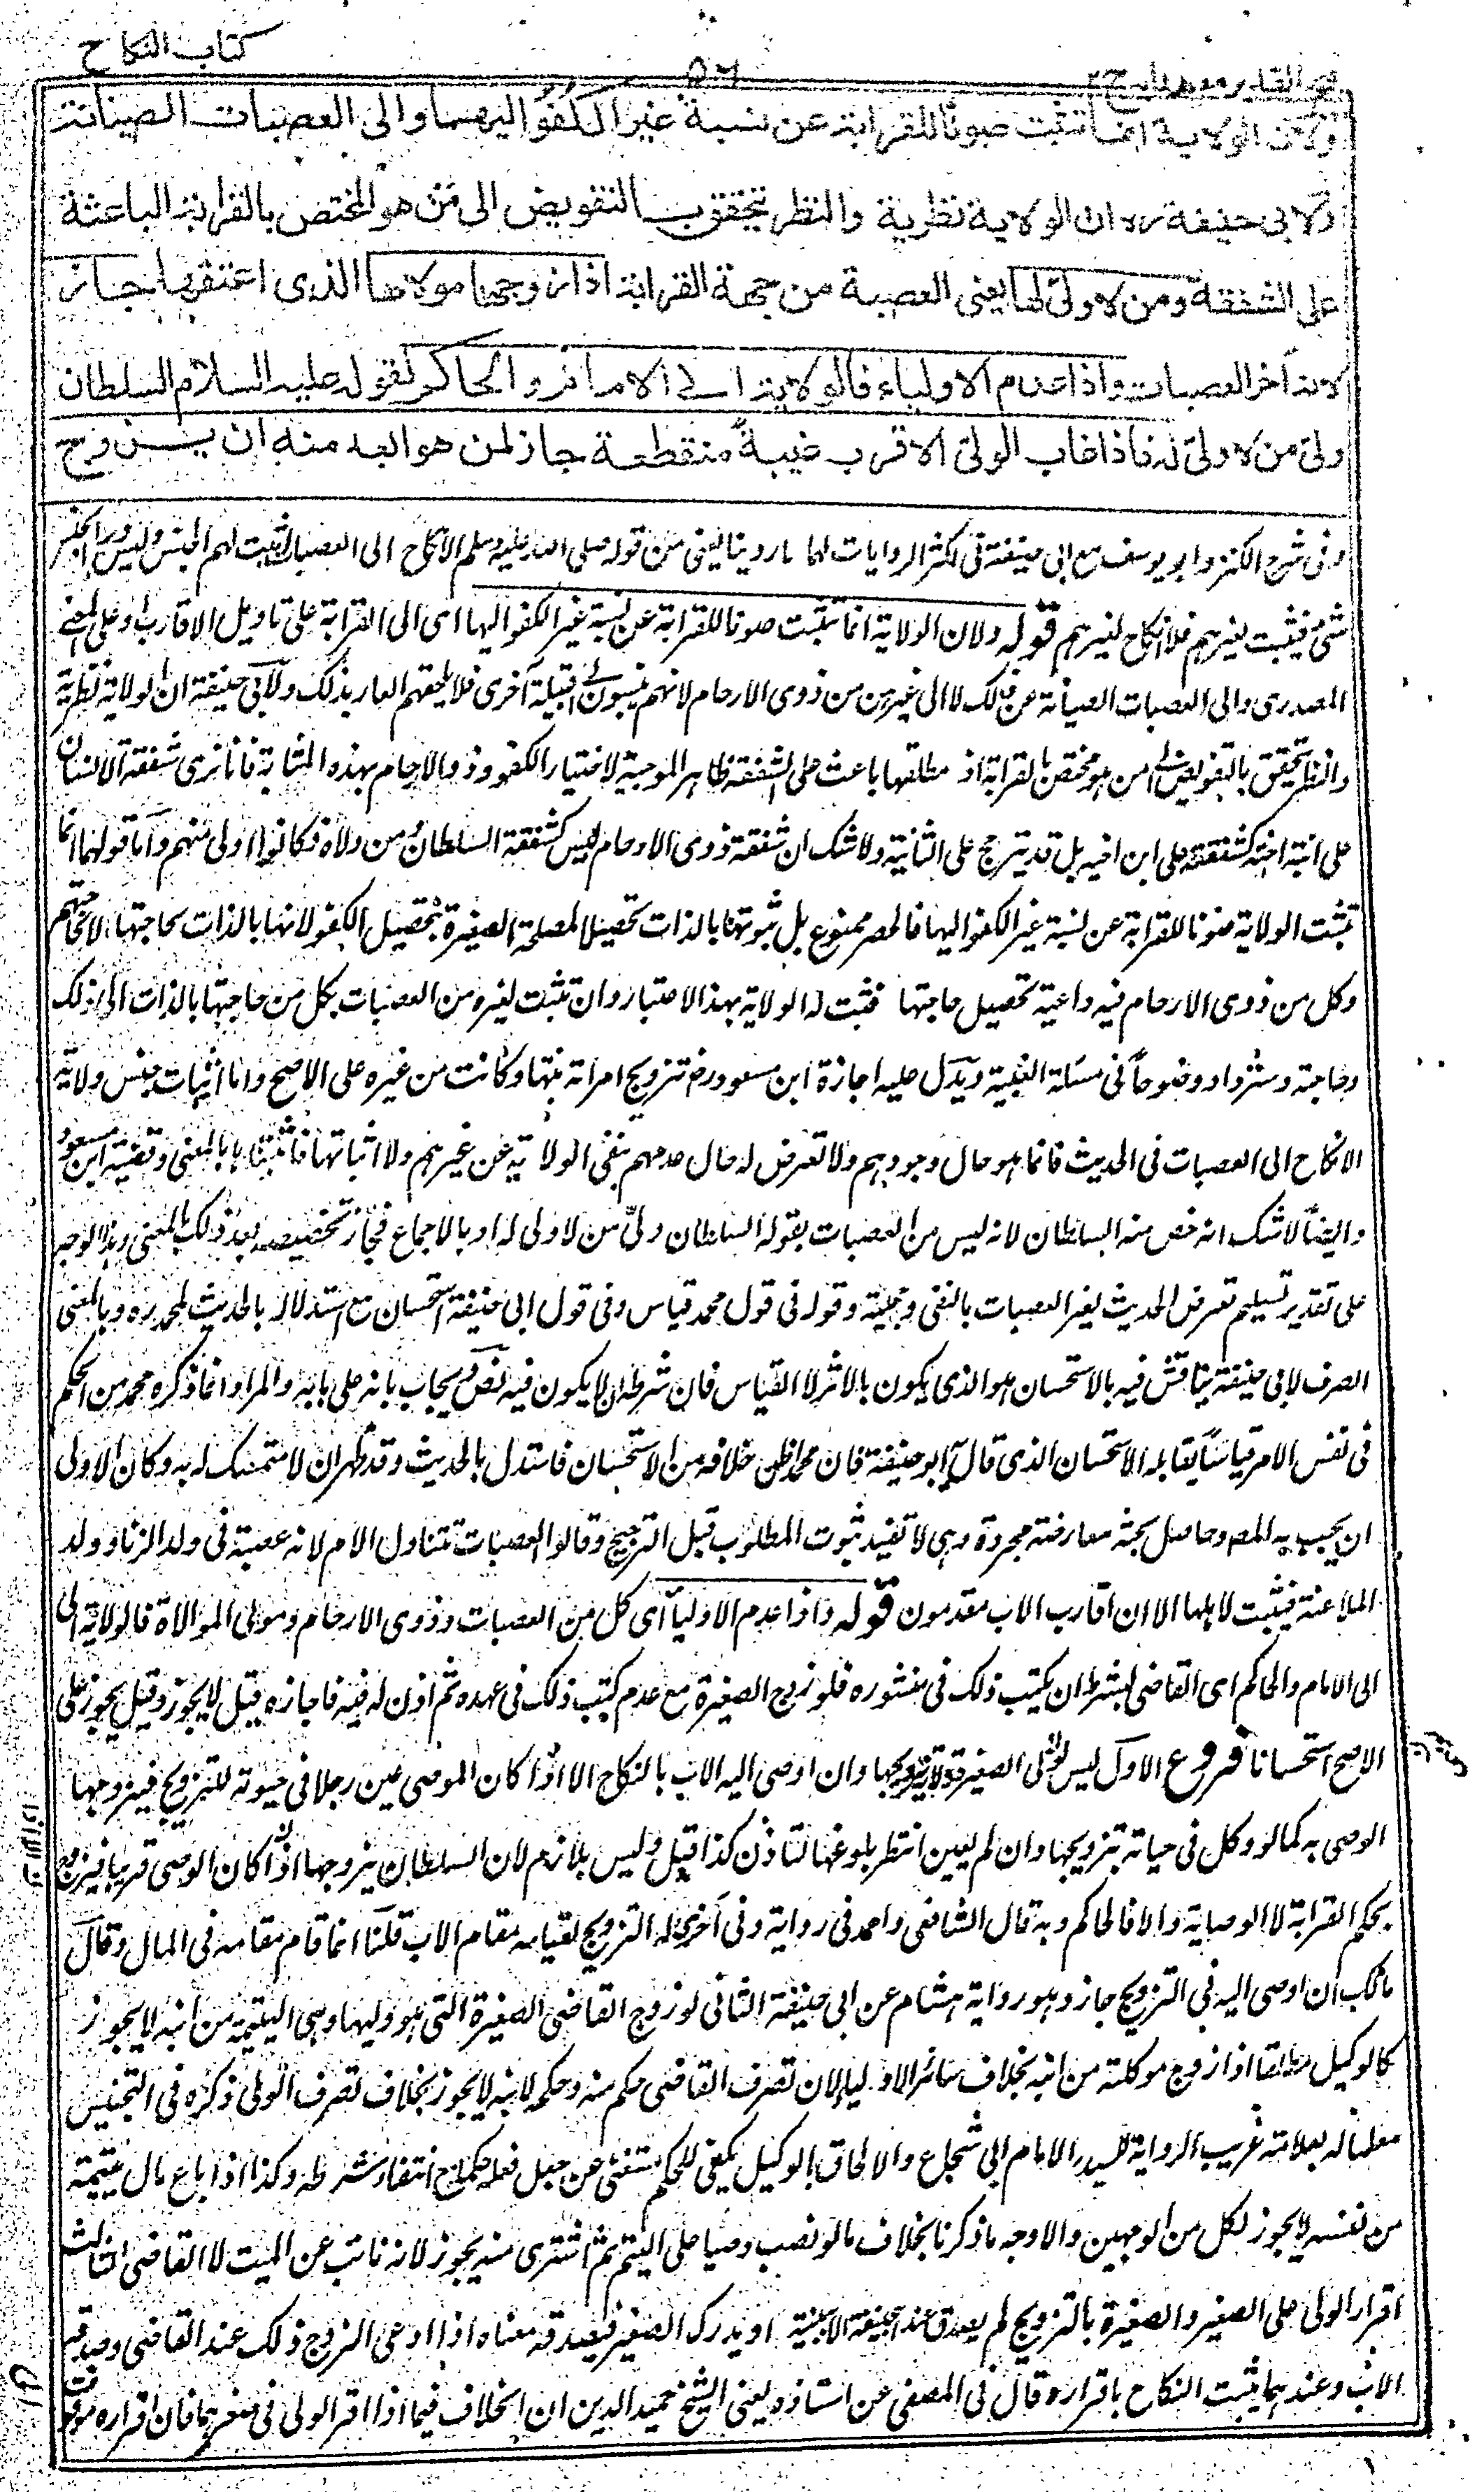 كتاب النكاح
٥٦
فتح القدير مع هدايه ج ٢
ولان الولاية انما تثبت صونا للقرابة عن نسبة غير الكفو اليهما والى العصبات الصيانة
ولابى حنيفة ره ان الولاية نظرية والنظر يتحقق بالتفويض الى من هو المختص بالقرابة الباعثة
على الشفقة ومن لا ولى لها يعنى العصبة من جهة القرابة اذا زوجها مولاها الذى اعتقها جاز
لانه آخر العصبات واذا عدم الاولياء فالولاية الى الامام والحاكم لقوله عليه السلام السلطان
ولى من لا ولى له فاذا غاب الولى الاقرب غيبة منقطعة جاز لمن هو ابعد منه ان يزوج
وفى شرح الكنز وابو يوسف مع ابى حنيفة فى اكثر الروايات لهما ما روينا يعنى من قوله صلى الله عليه وسلم الانكاح الى العصبات فيثبت لهم الجنس وليس وراء الجنس
شئ فيثبت لغيرهم فلا انكاح لغيرهم قوله ولان الولاية انما تثبت صونا للقرابة عن نسبة غير الكفو اليها اى الى القرابة على تاويل الاقارب او على المعنى
المصدرى والى العصبات الصيانة عن ذلك لا الى غيرهن من ذوى الارحام لانهم ينسبون الى قبيلة اخرى فلا يلحقهم العار بذلك ولابى حنيفة ان الولاية نظرية
والنظر يتحقق بالتفويض الى من هو مختص بالقرابة اذ مطلقها باعث على الشفقة ظاهر الموجبة لاختيار الكفو وذوو الارحام بهذه المثابة فانا نرى شفقة الانسان
على ابنة اخته كشفقته على ابن اخيه بل قد تترجح على الثانية ولا شك ان شفقة ذوى الارحام ليس كشفقة السلطان ومن ولاه فكانوا اولى منهم واما قولهما انما
تثبت الولاية صونا للقرابة عن نسبة غير الكفو اليها فالحصر ممنوع بل ثبوتها بالذات تحصيلا لمصلحة الصغيرة بتحصيل الكفو لانها بالذات لحاجتها لا لحاجتهم
وكل من ذوى الارحام فيه داعية تحصيل حاجتها فثبت له الولاية بهذا الاعتبار وان تثبت لغيره من العصبات بكل من حاجتها بالذات الى ذلك
وحاجته وستزداد وضوحا فى مسئلة الغيبة ويدل عليه اجازة ابن مسعود رض تزويج امراته بنتها وكانت من غيره على الاصح واما اثبات جنس ولاية
الانكاح الى العصبات فى الحديث فانما هو حال وجودهم ولا تعرض له حال عدمهم بنفى الولاية عن غيرهم ولا اثباتها فاثبتناها بالمعنى وقضية ابن مسعود
وايضا لا شك انه خص منه السلطان لانه ليس من العصبات بقوله السلطان ولى من لا ولى له او بالاجماع فجاز تخصيصه بعد ذلك بالمعنى وهذا الوجه
على تقدير تسليم تعرض الحديث لغير العصبات بالنفى وحجية وقوله فى قول محمد قياس وفى قول ابى حنيفة استحسان مع استدلاله بالحديث لمحمد ره وبالمعنى
الصرف لابى حنيفة يناقش فيه بالاستحسان هو الذى يكون بالاثر لا القياس فان شرطه ان لا يكون فيه نص ويجاب بانه على بابه والمراد انما ذكره محمد من الحكم
فى نفس الامر قياسا يقابله الاستحسان الذى قال به ابو حنيفة فان محمدا ظن خلافه من الاستحسان فاستدل بالحديث وقد ظهر ان لا متمسك له به وكان الاولى
ان يجيب به المص وحاصل بحثه معارضة مجردة وهى لا تفيد ثبوت المطلوب قبل الترجيح وقالوا العصبات تتناول الام لانه عصبة فى ولد الزنا وولد
الملاعنة فيثبت لاهلها الا ان اقارب الاب مقدمون قوله واذا عدم الاولياء اى كل من العصبات وذوى الارحام ومولى الموالاة فالولاية الى
الى الامام والحاكم اى القاضى بشرط ان يكتب ذلك فى منشوره فلو زوج الصغيرة مع عدم كتب ذلك فى عهده ثم اذن له فيه فاجازه قيل لا يجوز وقيل يجوز على
الاصح استحسانا فروع الاول ليس لوصى الصغيرة ولاية تزويجها وان اوصى اليه الاب بالنكاح الا اذا كان الموصى عين رجلا فى حيوته للتزويج فيزوجها
الوصى به كما لو وكل فى حياته بتزويجها وان لم يعين انتظر بلوغها لتاذن كذا قيل وليس بلازم لان السلطان يزوجها اذا كان الوصى قريبا فيزوج
بحكم القرابة لا الوصاية والا فالحاكم وبه قال الشافعى واحمد فى رواية وفى اخرى له التزويج لقيامه مقام الاب قلنا انما قام مقامه فى المال وقال
مالك ان اوصى اليه فى التزويج جاز وهو رواية هشام عن ابى حنيفة الثانى لو زوج القاضى الصغيرة التى هو وليها وهى اليتيمة من ابنه لا يجوز
كالوكيل مطلقا اذا زوج موكلته من ابنه بخلاف سائر الاولياء لان تصرف القاضى حكم منه وحكمه لابنه لا يجوز بخلاف تصرف الولى ذكره فى التجنيس
معلما له بعلامة غريب الرواية للسيد الامام ابى شجاع والالحاق بالوكيل يكفى للحكم مستغنى عن جعل فعله حكما مع انتفاء شرطه وكذا اذا باع مال يتيمة
من نفسه لا يجوز لكل من الوجهين والاوجه ما ذكرنا بخلاف ما لو نصب وصيا على اليتيم ثم اشترى منه يجوز لانه نائب عن الميت لا القاضى الثالث
اقرار الولى على الصغير والصغيرة بالتزويج لم يصدق عند ابى حنيفة الا ببينة او يدرك الصغير فيصدقه معناه اذا ادعى الزوج ذلك عند القاضى وصدقه
الاب وعندهما يثبت النكاح باقراره قال فى المصفى عن استاذه يعنى الشيخ حميد الدين ان الخلاف فيما اذا اقر الولى فى صغرهما فان اقراره موقوف